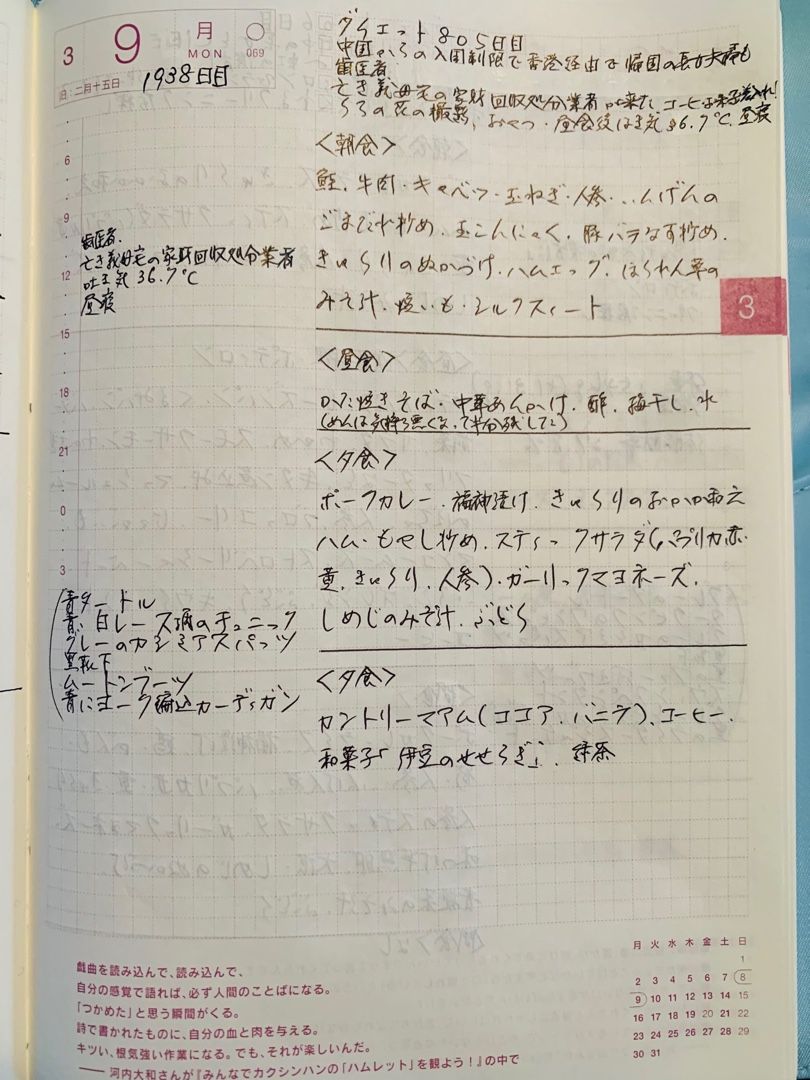 3 9 月 ○
MON 069
旧:二月十五日
1938日目
ダイエット805日目
中国からの入国制限で香港経由で帰国の長女夫婦も
歯医者
亡き義母宅の家財回収処分業者が来た、コーヒー菓子差入れ!
の花の撮影、おやつ・昼食後はき気36.7℃、昼寝
<朝食>
鮭、牛肉・キャベツ・玉ねぎ・人参・いんげんの
ごまだれ炒め、玉こんにゃく、豚バラなす炒め、
きゅうりのぬかづけ、ハムエッグ、ほうれん草の
みそ汁、焼いも・シルクスイート
<昼食>
かた焼きそば・中華あんかけ、酢、梅干し、水
(めんは気持ち悪くなって半分残して)
<夕食>
ポークカレー、福神漬け、きゅうりのおかか和え
ハム・もやし炒め、スティックサラダ(パプリカ赤・
黄、きゅうり、人参)・ガーリックマヨネーズ、
しめじのみそ汁、ぶどう
<夕食>
カントリーマアム(ココア、バニラ)、コーヒー、
和菓子「伊豆のせせらぎ」、緑茶
6
9
12
15
18
21
0
3
歯医者、
亡き義母宅の家財回収処分業者
吐き気 36.7℃
昼寝
青タートル
青、白レース編のチュニック
グレーのカシミアスパッツ
黒靴下
ムートンブーツ
青にヨーク編込カーディガン
3
戯曲を読み込んで、読み込んで、
自分の感覚で語れば、必ず人間のことばになる。
「つかめた」と思う瞬間がくる。
詩で書かれたものに、自分の血と肉を与える。
キツい、根気強い作業になる。でも、それが楽しいんだ。
—— 河内大和さんが『みんなでカクシンハンの「ハムレット」を観よう!』の中で
月 火 水 木 金 土 日
1
2 3 4 5 6 7 8
9 10 11 12 13 14 15
16 17 18 19 20 21 22
23 24 25 26 27 28 29
30 31